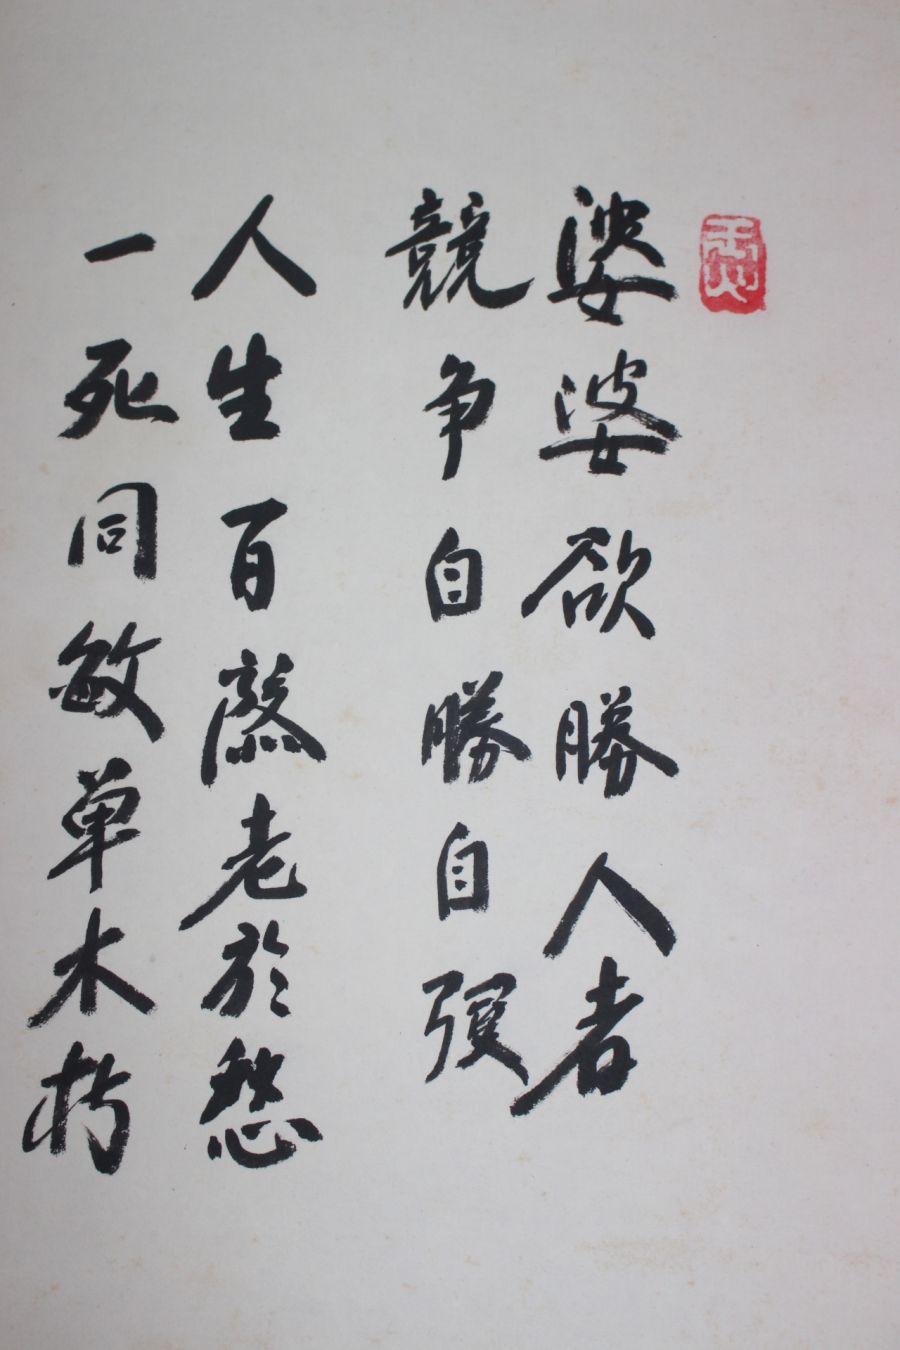 婆婆欲勝人者
競争自勝自强
人生百老於愁
一死同敏单木朽